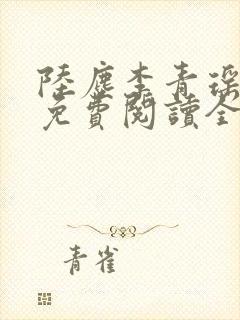 陸塵李青瑶
免費閱讀全
青雀